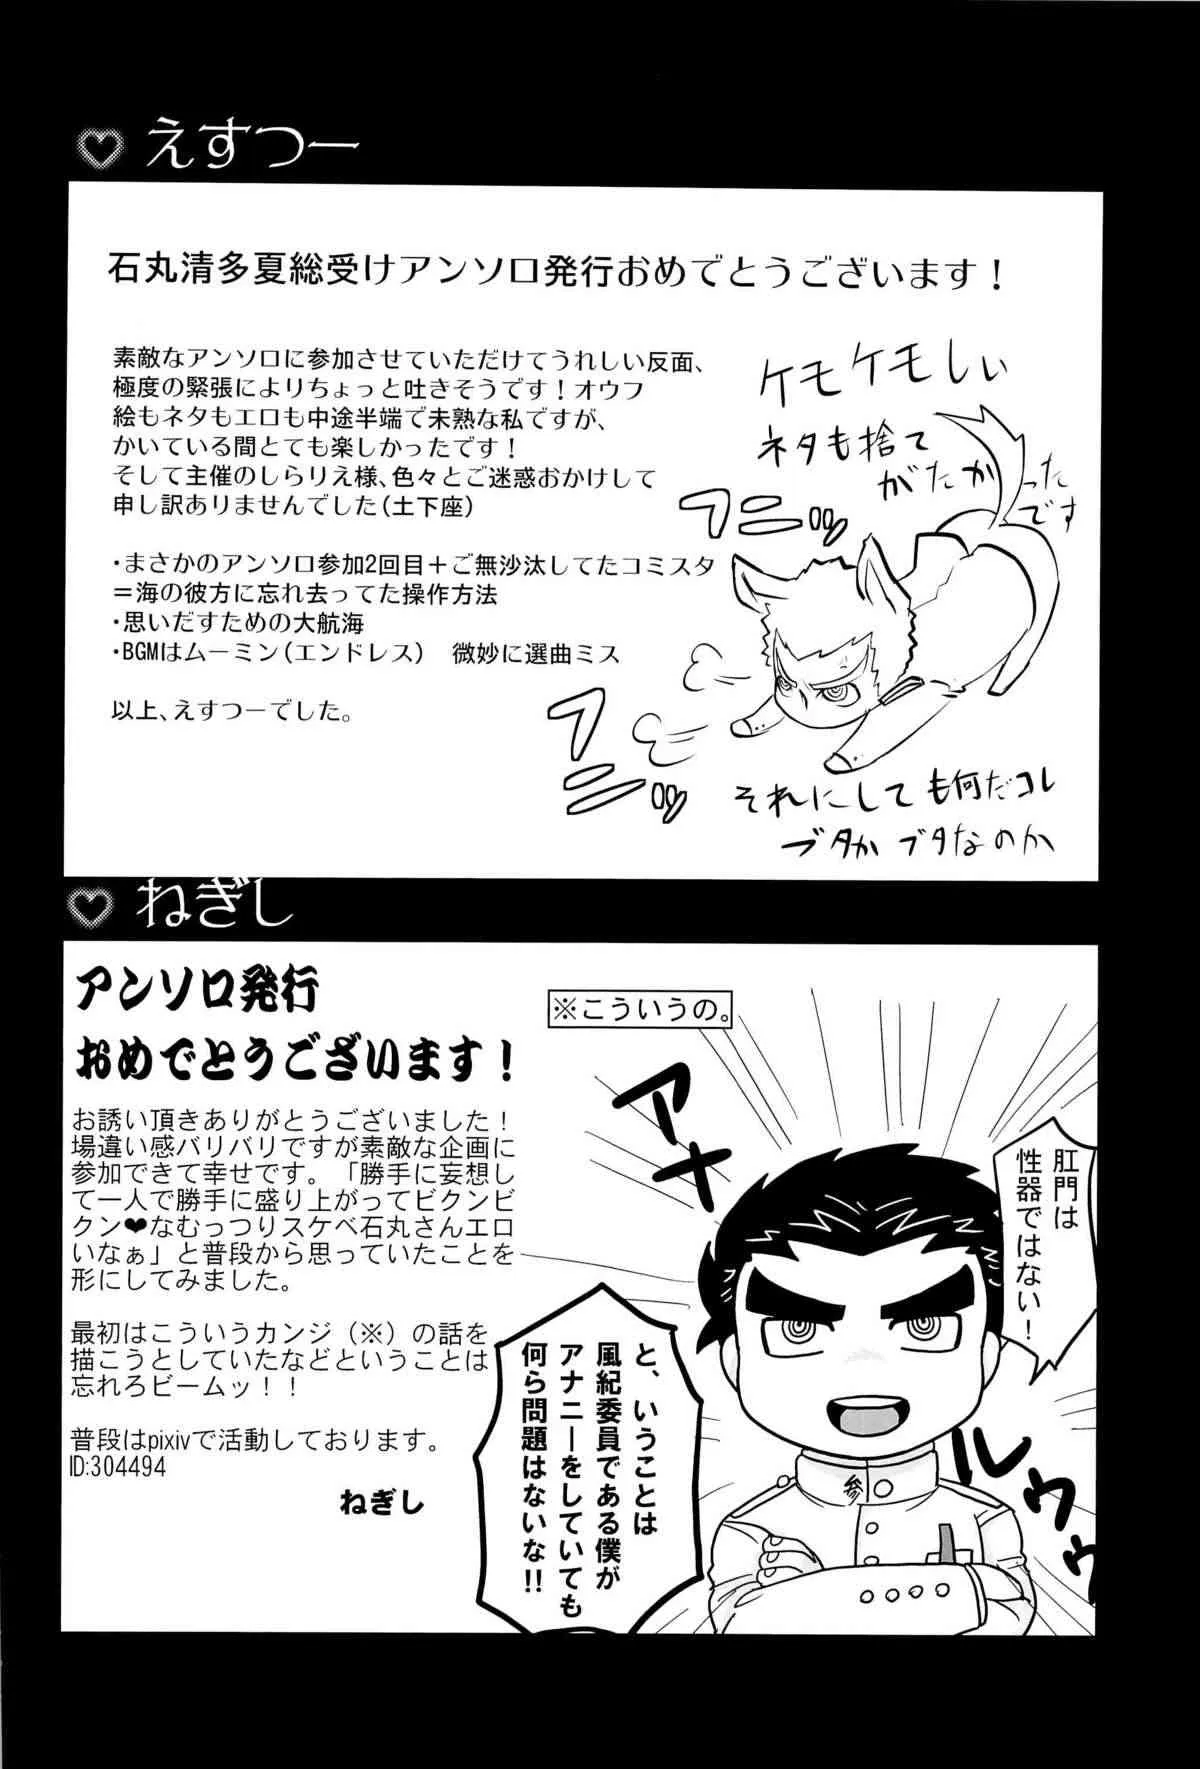 えすつー
石丸清多夏総受けアンソロ発行おめでとうございます！
素敵なアンソロに参加させていただけてうれしい反面、
極度の緊張によりちょっと吐きそうです！オウフ
絵もネタもエロも中途半端で未熟な私ですが、
かいている間とても楽しかったです！
そして主催のしらりえ様、色々とご迷惑おかけして
申し訳ありませんでした（土下座）
・まさかのアンソロ参加2回目＋ご無沙汰してたコミスタ
＝海の彼方に忘れ去ってた操作方法
・思いだすための大航海
・BGMはムーミン（エンドレス）　微妙に選曲ミス
以上、えすつーでした。
ケモケモしい
ネタも捨て
がたかったです
フニッ
フニッ
それにしても何だコレ
ブタか ブタなのか
ねぎし
アンソロ発行
おめでとうございます！
お誘い頂きありがとうございました！
場違い感バリバリですが素敵な企画に
参加できて幸せです。「勝手に妄想し
て一人で勝手に盛り上がってビクンビ
クン❤なむっつりスケベ石丸さんエロ
いなぁ」と普段から思っていたことを
形にしてみました。
最初はこういうカンジ（※）の話を
描こうとしていたなどということは
忘れろビームッ！！
普段はpixivで活動しております。
ID:304494
ねぎし
※こういうの。
アナ
肛門は
性器ではない！
と、いうことは
風紀委員である僕が
アナニーをしていても
何ら問題はないな!!
参
ルゥゥ